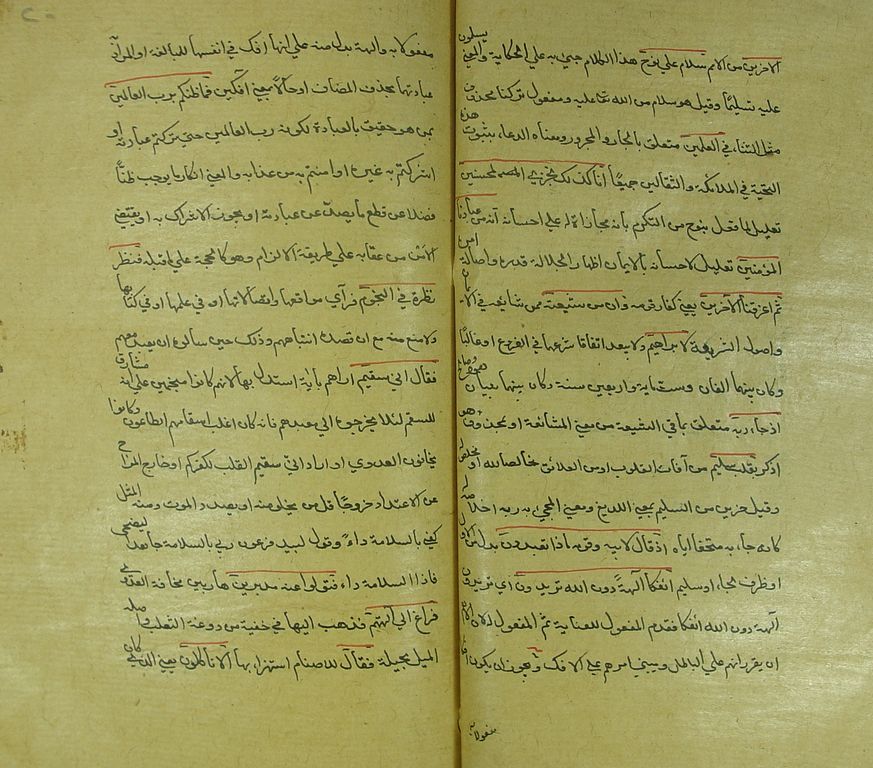 الآخرين من الامم سلام على نوح هذا الكلام جئ به على الحكاية والمعنى يسلمون
عليه تسليما وقيل هو سلام من الله تعالى عليه ومفعول تركنا محذوف
مثل الثناء في العلمين متعلق بالجار والمجرور ومعناه الدعاء بثبوت هذه
التحية في الملائكة والثقلين جميعا انا كذلك نجزي المحسنين
تعليل لما فعل بنوح من التكرمة بانه مجازاة له على احسانه انه من عبادنا
المؤمنين تعليل لاحسانه بالايمان اظهارا لجلالة قدره واصالة امره
ثم اغرقنا الآخرين يعني كفار قومه وان من شيعته ممن شايعه في الايمان
واصول الشريعة لابراهيم ولا يبعد اتفاق شرعهما في الفروع او غالبا
وكان بينهما الفان وستماية واربعين سنة وكان بينهما نبيان هود وصالح
اذ جاء ربه متعلق بما في الشيعة من معنى المشايعة او بمحذوف هو
اذكر بقلب سليم من آفات القلوب او من العلائق خالص لله او مخلص له
وقيل حزين من السليم بمعنى اللديغ ومعنى المجئ به ربه اخلاصه له
كانه جاء به متحفا اياه اذ قال لابيه وقومه ماذا تعبدون بدل من الاول
او ظرف لجاء او سليم ائفكا آلهة دون الله تريدون اي تريدون
آلهة دون الله افكا فقدم المفعول للعناية ثم المفعول له لان الاهم
ان يقرر انهم على الباطل ومبنى امرهم على الافك ويجوز ان يكون افكا
مفعولا به
مفعولا به وآلهة بدل منه على انها افك في انفسها للمبالغة او المراد
عبادتها بحذف المضاف او حالا بمعنى آفكين فما ظنكم برب العالمين
بمن هو حقيق بالعبادة لكونه رب العالمين حتى تركتم عبادته او
اشركتم به غيره او امنتم به من عذابه والمعنى انكار ما يوجب ظنا
فضلا عن قطع ما يصد عن عبادته او يجوز الاشراك به او يقتضي
الامن من عقابه على طريقة الالزام وهو كالحجة على ما قبله فنظر
نظرة في النجوم فرأى مواقعها واتصالاتها او في علمها او في كتابها
ولا منع منه مع ان قصده ايهامهم وذلك حين سالوه ان يعيد معهم
فقال اني سقيم اراهم بانه استدل بها لانهم كانوا منجمين على انه مشارف
للسقم لئلا يخرجوه الى معيدهم فانه كان اغلب اسقامهم الطاعون وكانوا
يخافون العدوى او اراد اني سقيم القلب لكفركم او خارج المزاج
عن الاعتدال خروجا قل من يخلو منه او بصدد الموت ومنه المثل
كفى بالسلامة داء وقول لبيد فدعوت ربي بالسلامة جاهدا ليصحني
فاذا السلامة داء فتولوا عنه مدبرين هاربين مخافة العدوى
فراغ الى آلهتهم فذهب اليها في خفية من روغة الثعلب واصله
الميل بحيلة فقال للاصنام استهزاء بها الا تاكلون يعني الذي كان